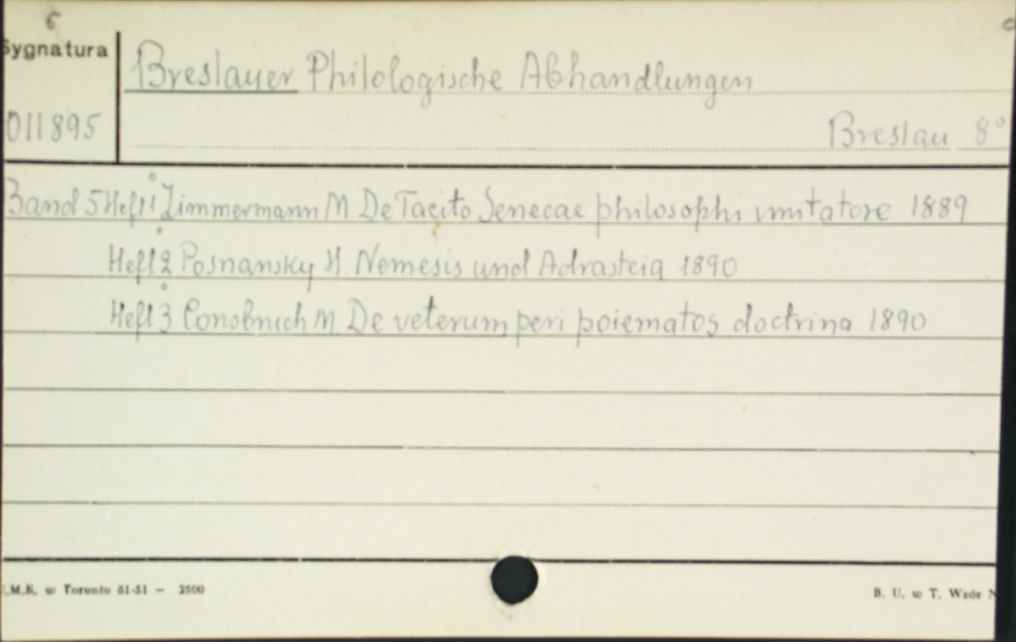 6
Sygnatura
Breslauer Philologische Abhandlungen
011895
Breslau 8°
Band 5 Heft 1 Zimmermann M De Tacito Senecae philosophi imitatore 1889
Heft 2 Posnansky H Nemesis und Adrasteia 1890
Heft 3 Consbruch M De veterum peri poiematos doctrina 1890
.M.K. w Toruniu 51-51 — 2500
B. U. w T. Wzór N